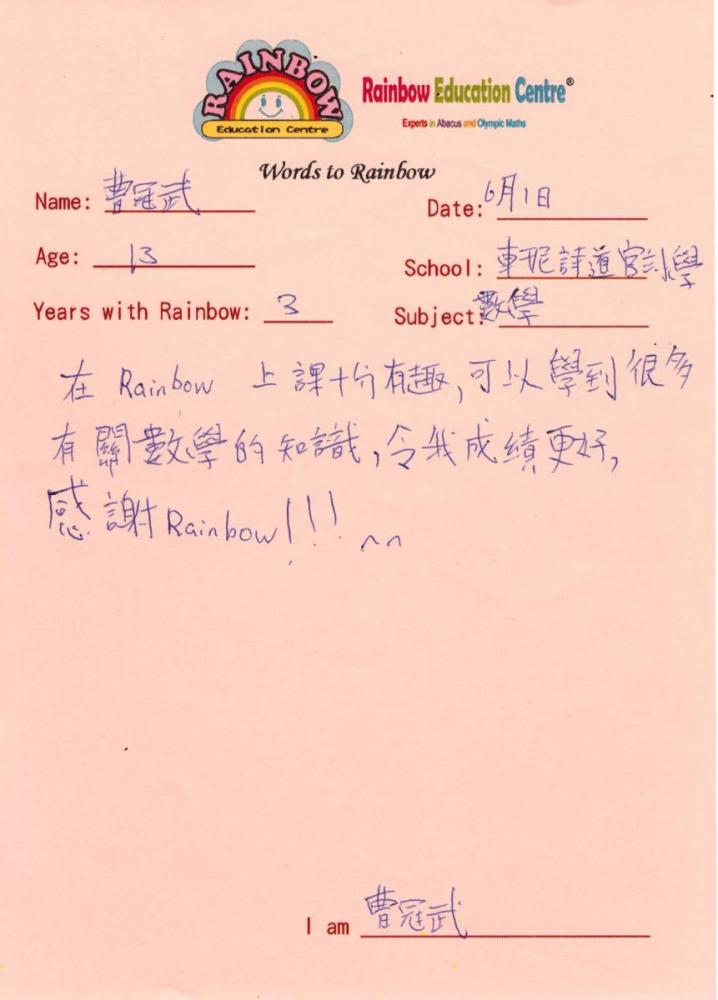 RAINBOW
Education Centre
Rainbow Education Centre®
Experts in Abacus and Olympic Maths
Words to Rainbow
Name: 曹冠武
Date: 6月1日
Age: 13
School: 軒尼詩道官小學
Years with Rainbow: 3
Subject: 數學
在 Rainbow 上課十分有趣,可以學到很多
有關數學的知識,令我成績更好,
感謝 Rainbow!!! ^^
I am 曹冠武